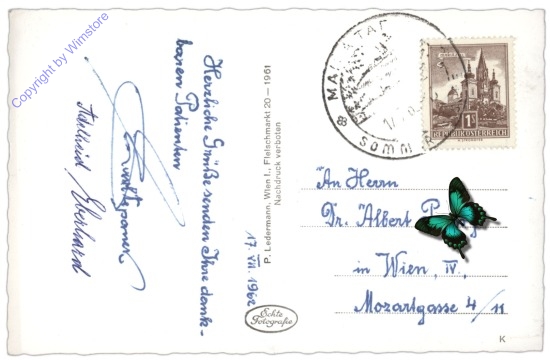 Copyright by Wimstore
Herzliche Grüße senden Ihre dank-
baren Patienten
Adelheid Eberhard
17. VII. 1962
P. Ledermann, Wien I., Fleischmarkt 20 — 1961
Nachdruck verboten
Echte
Fotografie
MA
TAL
SOMM
1S
REPUBLIK ÖSTERREICH
An Herrn
Dr. Albert
in Wien, IV,
Mozartgasse 4/11
K